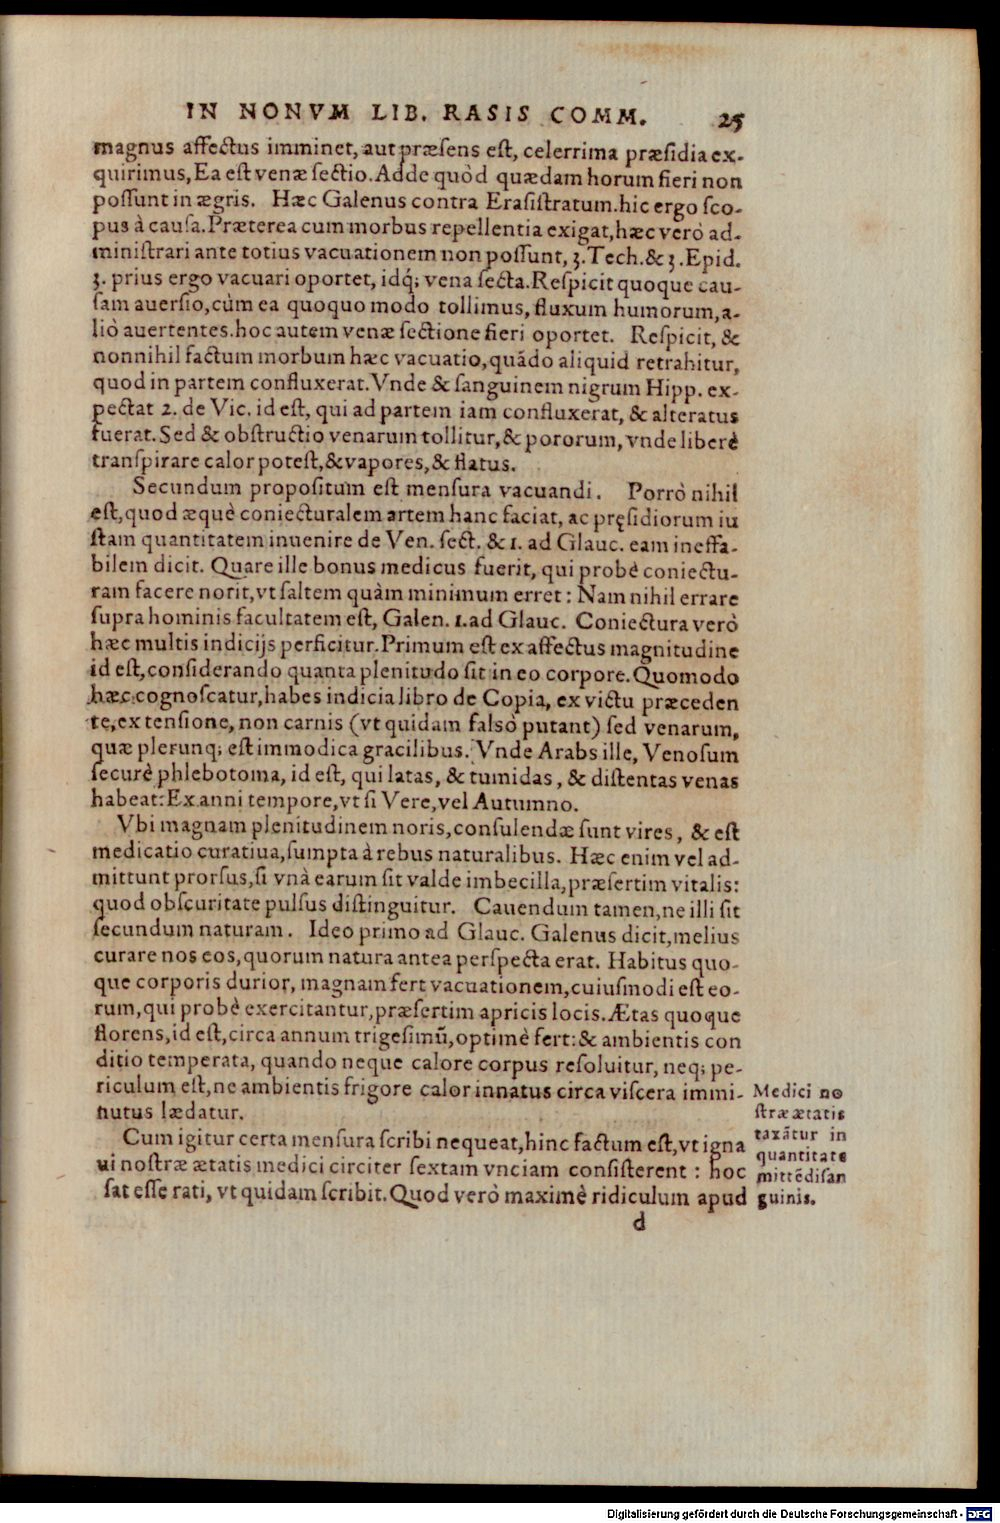 IN NONVM LIB. RASIS COMM. 25
magnus affectus imminet, aut præsens est, celerrima præsidia ex-
quirimus, Ea est venæ sectio. Adde quòd quædam horum fieri non
possunt in ægris. Hæc Galenus contra Erasistratum. hic ergo sco-
pus à causa. Præterea cum morbus repellentia exigat, hæc verò ad-
ministrari ante totius vacuationem non possunt, 3. Tech. & 3. Epid.
3. prius ergo vacuari oportet, idq; vena secta. Respicit quoque cau-
sam auersio, cùm ea quoquo modo tollimus, fluxum humorum, a-
liò auertentes. hoc autem venæ sectione fieri oportet. Respicit, &
nonnihil factum morbum hæc vacuatio, quãdo aliquid retrahitur,
quod in partem confluxerat. Vnde & sanguinem nigrum Hipp. ex-
pectat 2. de Vic. id est, qui ad partem iam confluxerat, & alteratus
fuerat. Sed & obstructio venarum tollitur, & pororum, vnde liberè
transpirare calor potest, & vapores, & flatus.
Secundum propositum est mensura vacuandi. Porrò nihil
est, quod æquè coniecturalem artem hanc faciat, ac pręsidiorum iu
stam quantitatem inuenire de Ven. sect. & 1. ad Glauc. eam ineffa-
bilem dicit. Quare ille bonus medicus fuerit, qui probè coniectu-
ram facere norit, vt saltem quàm minimum erret: Nam nihil errare
supra hominis facultatem est, Galen. 1. ad Glauc. Coniectura verò
hæc multis indicijs perficitur. Primum est ex affectus magnitudine
id est, considerando quanta plenitudo sit in eo corpore. Quomodo
hæc cognoscatur, habes indicia libro de Copia, ex victu præceden
te, ex tensione, non carnis (vt quidam falsò putant) sed venarum,
quæ plerunq; est immodica gracilibus. Vnde Arabs ille, Venosum
securè phlebotoma, id est, qui latas, & tumidas, & distentas venas
habeat: Ex anni tempore, vt si Vere, vel Autumno.
Vbi magnam plenitudinem noris, consulendæ sunt vires, & est
medicatio curatiua, sumpta à rebus naturalibus. Hæc enim vel ad-
mittunt prorsus, si vnà earum sit valde imbecilla, præsertim vitalis:
quod obscuritate pulsus distinguitur. Cauendum tamen, ne illi sit
secundum naturam. Ideo primo ad Glauc. Galenus dicit, melius
curare nos eos, quorum natura antea perspecta erat. Habitus quo-
que corporis durior, magnam fert vacuationem, cuiusmodi est eo-
rum, qui probè exercitantur, præsertim apricis locis. Ætas quoque
florens, id est, circa annum trigesimũ, optimè fert: & ambientis con
ditio temperata, quando neque calore corpus resoluitur, neq; pe-
riculum est, ne ambientis frigore calor innatus circa viscera immi-
nutus lædatur.
Cum igitur certa mensura scribi nequeat, hinc factum est, vt igna
ui nostræ ætatis medici circiter sextam vnciam consisterent: hoc
sat esse rati, vt quidam scribit. Quod verò maximè ridiculum apud
Medici no
stræ ætatis
taxãtur in
quantitate
mittẽdi san
guinis.
d
Digitalisierung gefördert durch die Deutsche Forschungsgemeinschaft - DFG